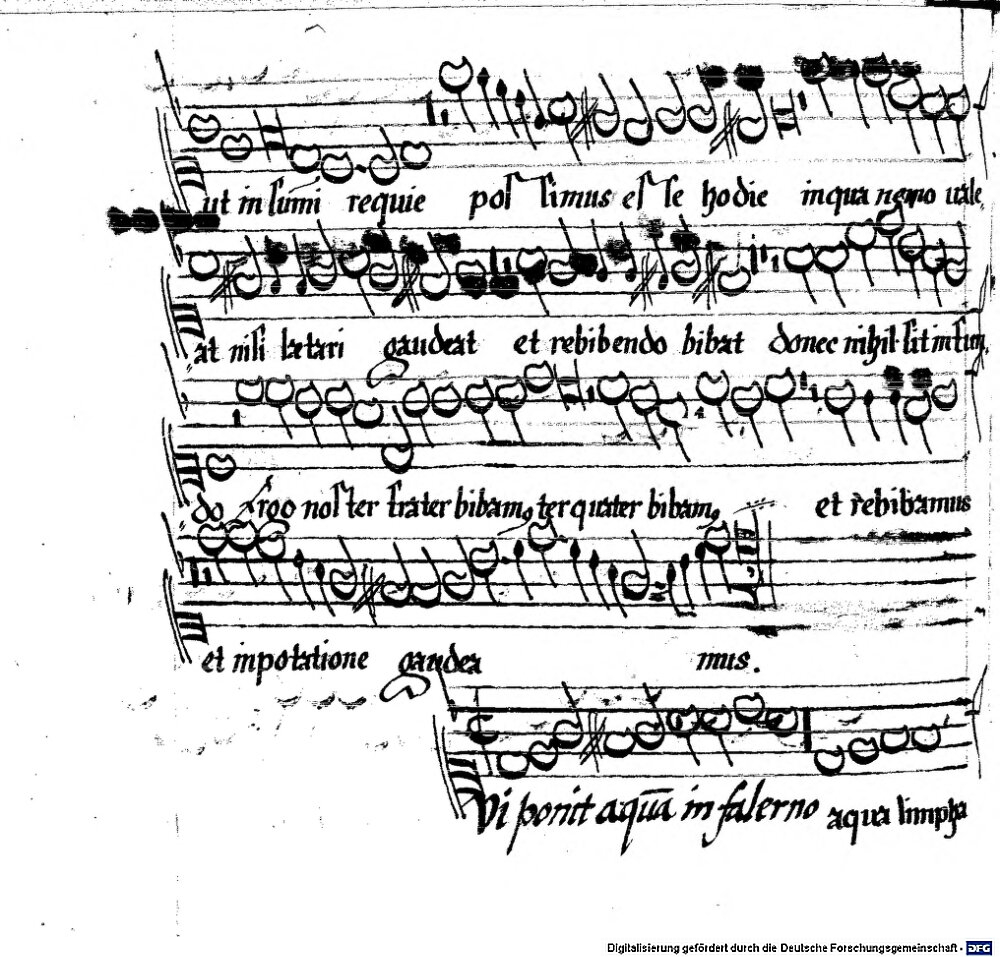 ut in sūmi requie pos simus es se hodie in qua nemo uale
at nisi lætari gaudeat et rebibendo bibat donec nihil sit in fun
do roo noster frater bibamꝰ ter quater bibamꝰ et rebibamus
et in potatione gaudea mus.
Vi ponit aquā in falerno aqua limpha
Digitalisierung gefördert durch die Deutsche Forschungsgemeinschaft - DFG